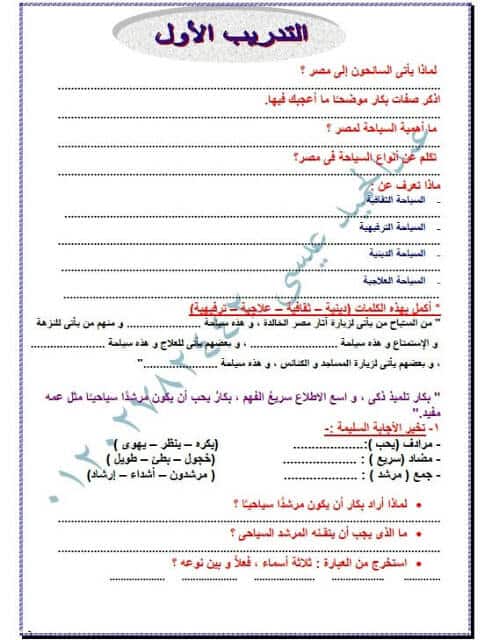 التدريب الأول
لماذا يأتى السائحون إلى مصر ؟
اذكر صفات بكار موضحًا ما أعجبك فيها.
ما أهمية السياحة لمصر ؟
تكلم عن أنواع السياحة فى مصر؟
ماذا تعرف عن :
- السياحة الثقافية
- السياحة الترفيهية
- السياحة الدينية
- السياحة العلاجية
* أكمل بهذه الكلمات (دينية – ثقافية – علاجية – ترفيهية)
" من السياح من يأتى لزيارة آثار مصر الخالدة ، و هذه سياحة .................. و منهم من يأتى للنزهة
و الإستمتاع و هذه سياحة .................. ، و بعضهم يأتى للعلاج و هذه سياحة ..................
، و بعضهم يأتى لزيارة المساجد و الكنائس ، و هذه سياحة .................."
" بكار تلميذ ذكى ، و اسع الاطلاع سريعُ الفهم ، بكارُ يحب أن يكون مرشدًا سياحيًا مثل عمه
مفيد."
١- تخير الأجابة السليمة :-
- مرادف (يحب): .................. (يكره – ينظر – يهوى )
- مضاد (سريع ) : .................. (خجول – بطئ – طويل )
- جمع ( مرشد ) : .................. ( مرشدون – أشداء – إرشاد)
• لماذا أراد بكار أن يكون مرشدًا سياحيًا ؟
• ما الذى يجب أن يتقنه المرشد السياحى ؟
• استخرج من العبارة : ثلاثة أسماء ، فعلاً و بين نوعه ؟
عيسى